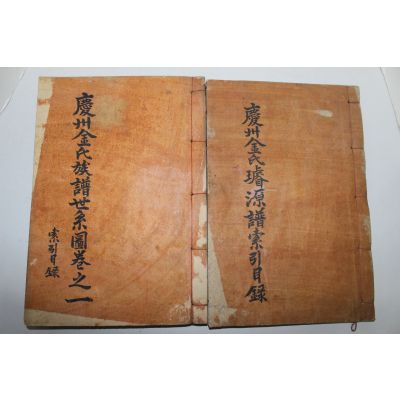 慶州金氏族譜世系圖卷之一
索引目錄
慶州金氏璿源譜索引目錄